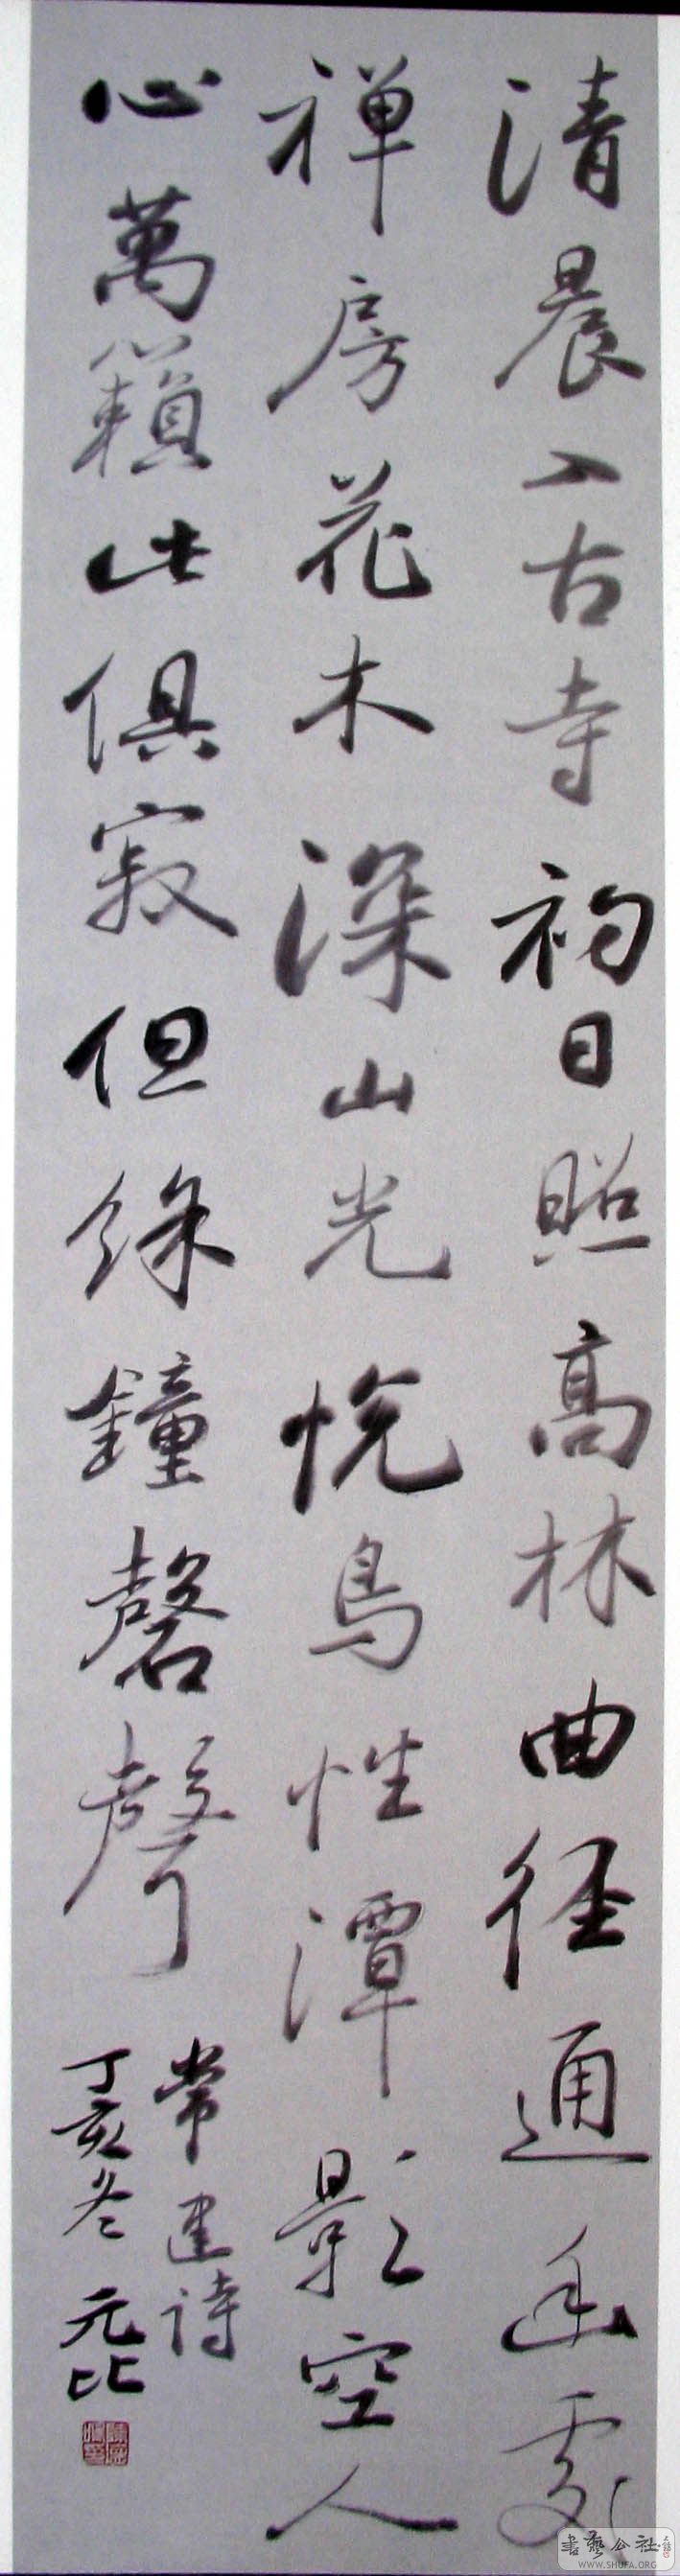 清晨入古寺初日照高林曲径通幽处
禅房花木深山光悦鸟性潭影空人
心萬籟此俱寂但餘鐘磬聲
常建诗
丁亥冬 元
書藝公社
WWW.SHUFA.ORG